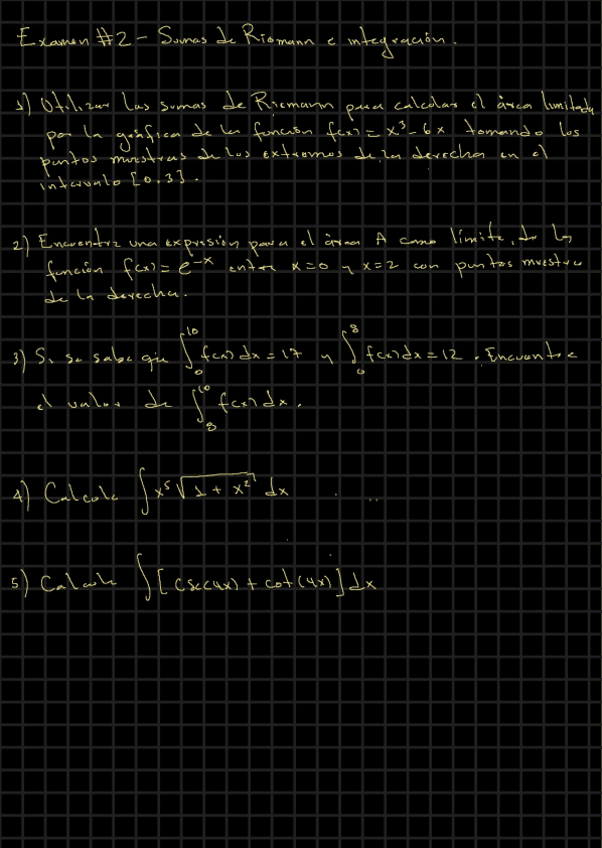 Examen #2 - Sumas de Riemann e integración.
1) Utilizar las sumas de Riemann para calcular el área limitada
por la gráfica de la función f(x) = x³ - 6x tomando los
puntos muestras de los extremos de la derecha en el
intervalo [0,3].
2) Encuentre una expresión para el área A como límite, de la
función f(x) = e^-x entre x=0 y x=2 con puntos muestra
de la derecha.
3) Si se sabe que ∫₀¹⁰ f(x) dx = 17 y ∫₀⁸ f(x) dx = 12. Encuentre
el valor de ∫₈¹⁰ f(x) dx.
4) Calcule ∫ x⁵ √(1 + x²) dx
5) Calcule ∫ [csc(4x) + cot(4x)] dx